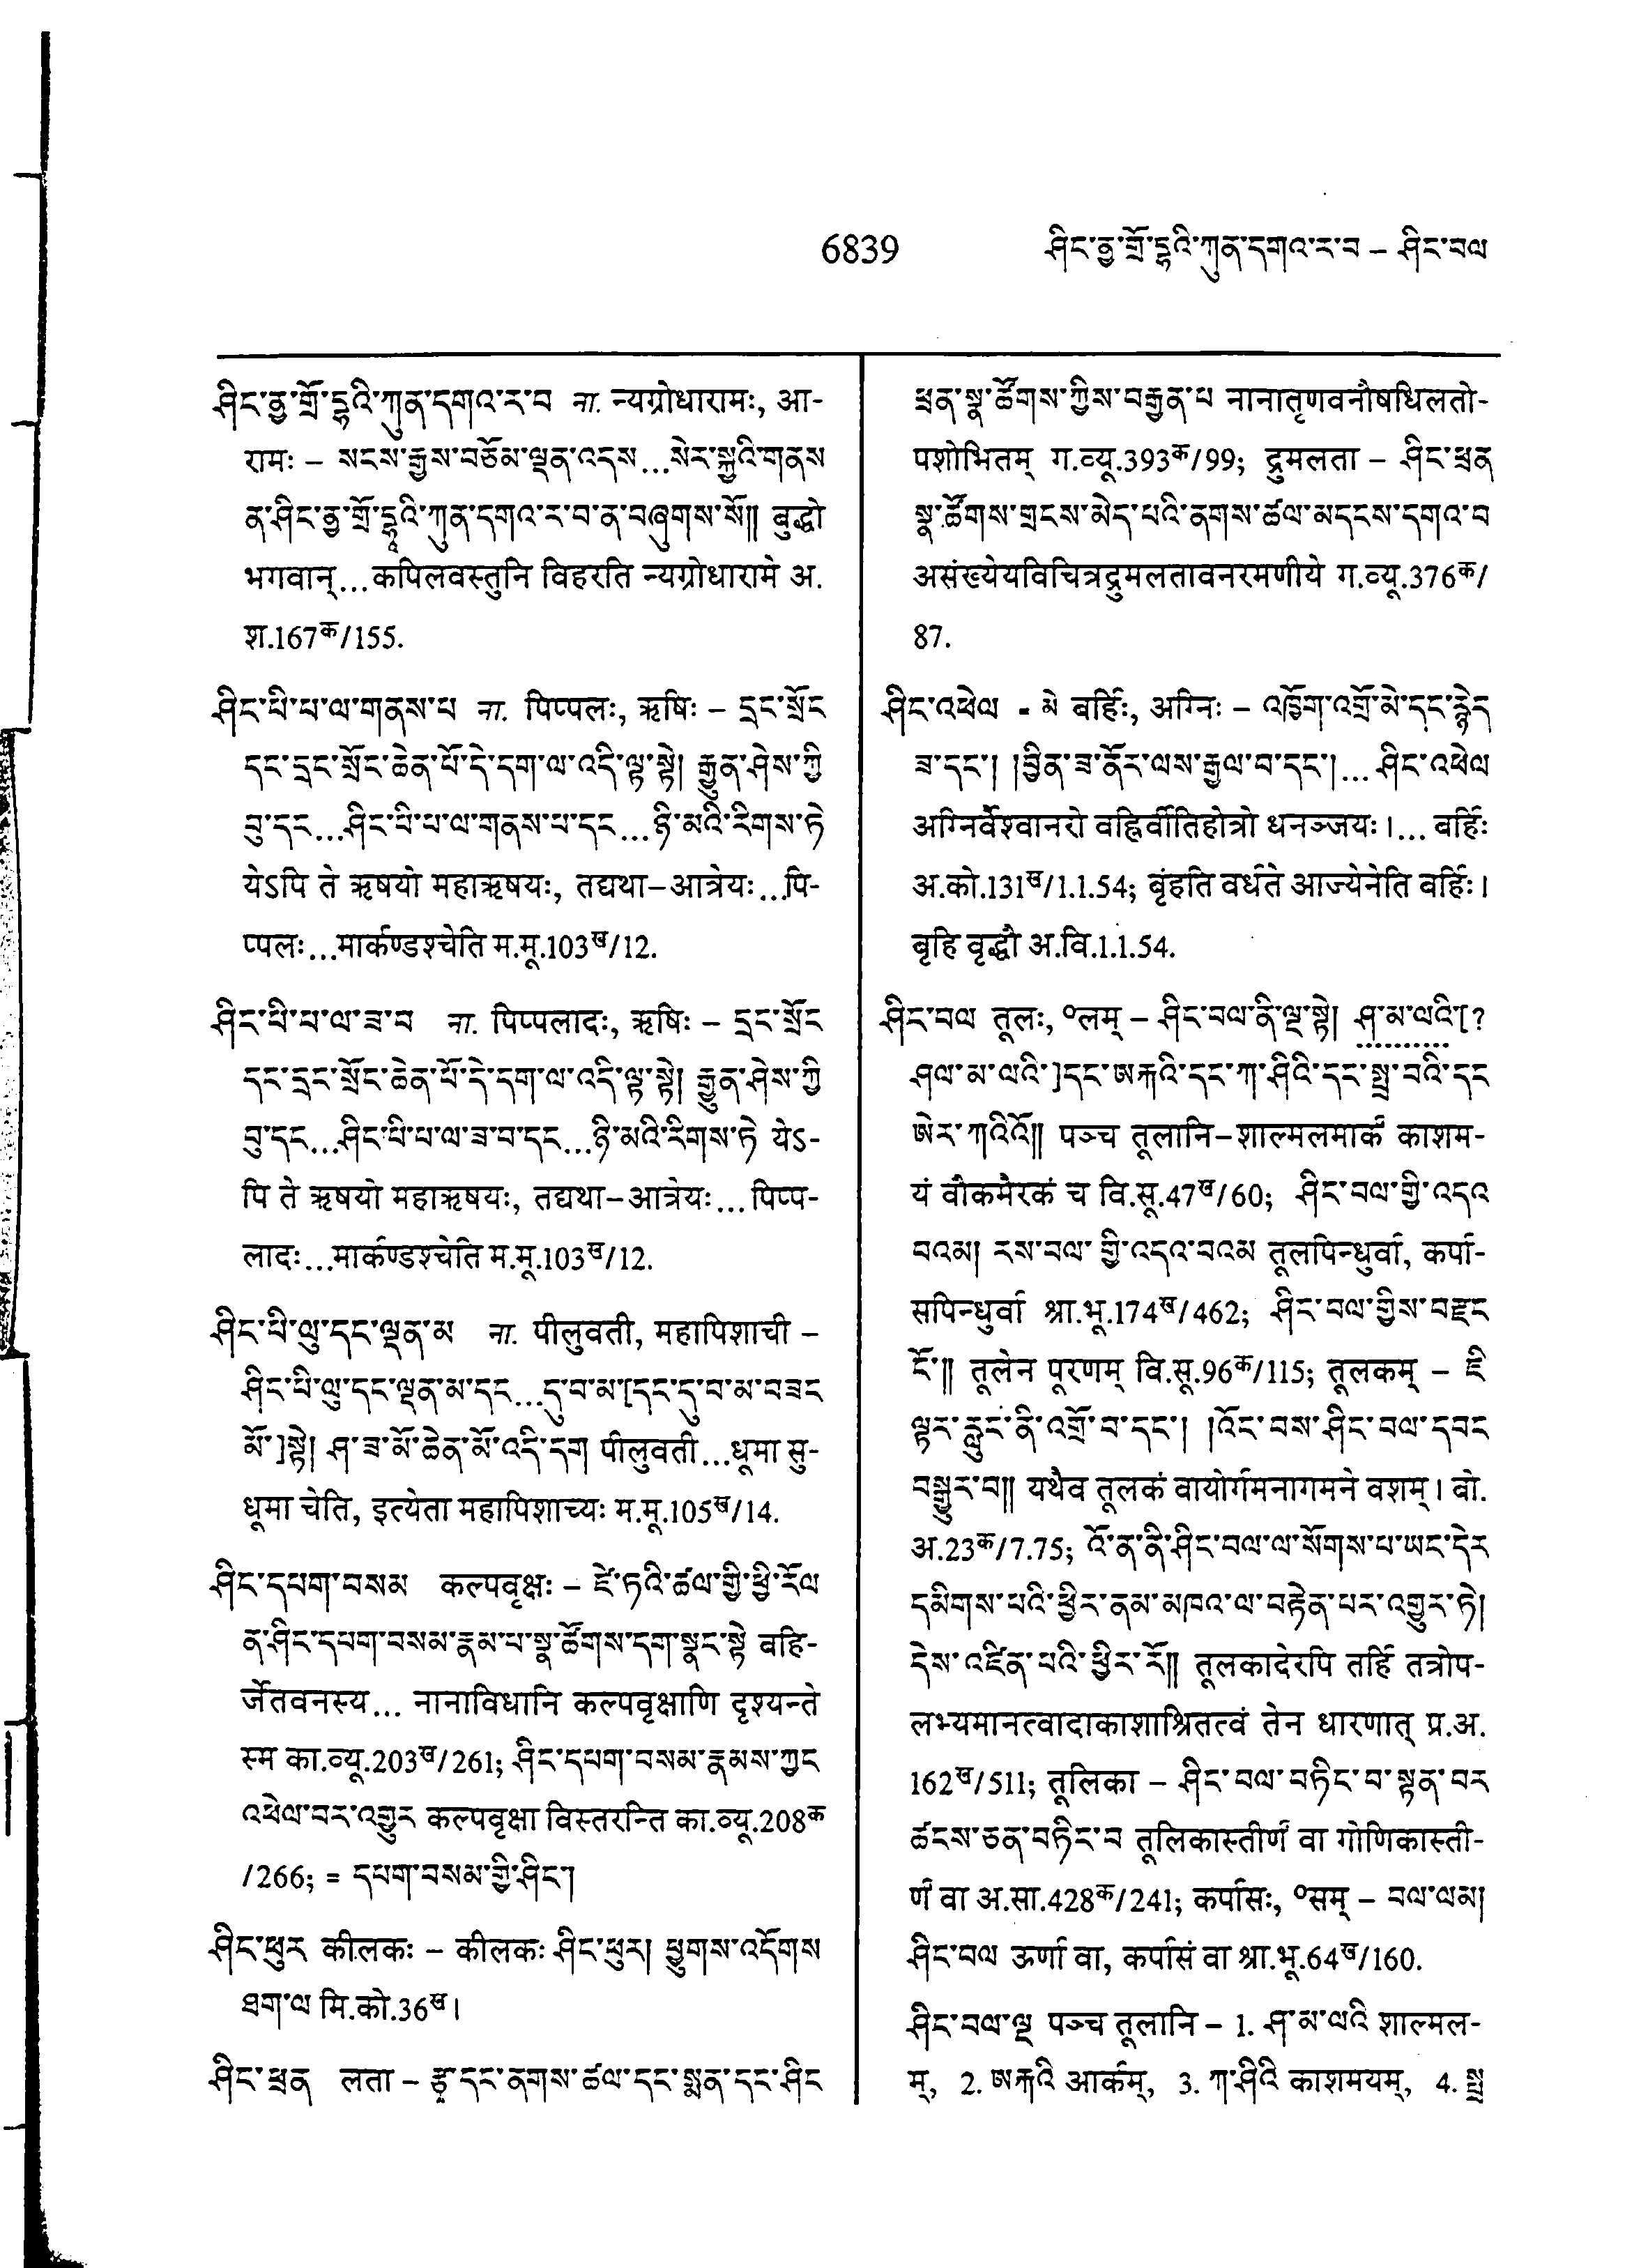 6839
ཤིང་ནྱ་གྲོ་དྷའི་ཀུན་དགའ་ར་བ – ཤིང་བལ
ཤིང་ནྱ་གྲོ་དྷའི་ཀུན་དགའ་ར་བ ना. न्यग्रोधारामः, आ-
रामः – སངས་རྒྱས་བཅོམ་ལྡན་འདས...སེར་སྐྱའི་གནས
ན་ཤིང་ནྱ་གྲོ་དྷའི་ཀུན་དགའ་ར་བ་ན་བཞུགས་སོ།། बुद्धो
भगवान्...कपिलवस्तुनि विहरति न्यग्रोधारामे अ.
श.167क/155.
ཤིང་པི་པ་ལ་གནས་པ ना. पिप्पलः, ऋषिः – དྲང་སྲོང
དང་དྲང་སྲོང་ཆེན་པོ་དེ་དག་ལ་འདི་ལྟ་སྟེ། རྒྱུན་ཤེས་ཀྱི
བུ་དང...ཤིང་པི་པ་ལ་གནས་པ་དང...ཉི་མའི་རིགས་ཏེ
येऽपि ते ऋषयो महाऋषयः, तद्यथा–आत्रेयः...पि-
प्पलः...मार्कण्डश्चेति म.मू.103ख/12.
ཤིང་པི་པ་ལ་ཟ་བ ना. पिप्पलादः, ऋषिः – དྲང་སྲོང
དང་དྲང་སྲོང་ཆེན་པོ་དེ་དག་ལ་འདི་ལྟ་སྟེ། རྒྱུན་ཤེས་ཀྱི
བུ་དང...ཤིང་པི་པ་ལ་ཟ་བ་དང...ཉི་མའི་རིགས་ཏེ येऽ-
पि ते ऋषयो महाऋषयः, तद्यथा–आत्रेयः...पिप्प-
लादः...मार्कण्डश्चेति म.मू.103ख/12.
ཤིང་པི་ལུ་དང་ལྡན་མ ना. पीलुवती, महापिशाची –
ཤིང་པི་ལུ་དང་ལྡན་མ་དང...དུ་བ་མ་[དང་དུ་བ་མ་བཟང
མོ་]སྟེ། ཤ་ཟ་མོ་ཆེན་མོ་འདི་དག पीलुवती...धूमा सु-
धूमा चेति, इत्येता महापिशाच्यः म.मू.105ख/14.
ཤིང་དཔག་བསམ कल्पवृक्षः – ཛེ་ཏའི་ཚལ་གྱི་ཕྱི་རོལ
ན་ཤིང་དཔག་བསམ་རྣམ་པ་སྣ་ཚོགས་དག་སྣང་སྟེ बहि-
र्जेतवनस्य... नानाविधानि कल्पवृक्षाणि दृश्यन्ते
स्म का.व्यू.203ख/261; ཤིང་དཔག་བསམ་རྣམས་ཀྱང
འཕེལ་བར་འགྱུར कल्पवृक्षा विस्तरन्ति का.व्यू.208क
/266; = དཔག་བསམ་གྱི་ཤིང་།
ཤིང་ཕུར कीलकः – कीलकः ཤིང་ཕུར། ཕྱུགས་འདོགས
ཐག་ལ मि.को.36ख।
ཤིང་ཕྲན लता – རྩྭ་དང་ནགས་ཚལ་དང་སྨན་དང་ཤིང
ཕྲན་སྣ་ཚོགས་ཀྱིས་བརྒྱན་པ नानातृणवनौषधिलतो-
पशोभितम् ग.व्यू.393क/99; द्रुमलता – ཤིང་ཕྲན
སྣ་ཚོགས་གྲངས་མེད་པའི་ནགས་ཚལ་མདངས་དགའ་བ
असंख्येयविचित्रद्रुमलतावनरमणीये ग.व्यू.376क/
87.
ཤིང་འཕེལ = མེ बर्हिः, अग्निः – འཁྱོག་འགྲོ་མེ་དང་རྙེད
ཟ་དང་། །བྱིན་ཟ་ནོར་ལས་རྒྱལ་བ་དང་།... ཤིང་འཕེལ
अग्निर्वैश्वानरो वह्निर्वीतिहोत्रो धनञ्जयः।... बर्हिः
अ.को.131ख/1.1.54; बृंहति वर्धते आज्येनेति बर्हिः।
बृहि वृद्धौ अ.वि.1.1.54.
ཤིང་བལ तूलः, ०लम् – ཤིང་བལ་ནི་ལྔ་སྟེ། ཤ་མ་ལའི་[?
ཤལ་མ་ལའི་]དང་ཨརྐའི་དང་ཀ་ཤིའི་དང་སྤྲ་བའི་དང
ཨེར་ཀའིའོ།། पञ्च तूलानि–शाल्मलमार्कं काशम-
यं वौकमैरकं च वि.सू.47ख/60; ཤིང་བལ་གྱི་འདའ
བའམ། རས་བལ་ གྱི་འདའ་བའམ तूलपिन्धुर्वा, कर्पा-
सपिन्धुर्वा श्रा.भू.174ख/462; ཤིང་བལ་གྱིས་བརྫང
ངོ་།། तूलेन पूरणम् वि.सू.96क/115; तूलकम् – ཇི
ལྟར་རླུང་ནི་འགྲོ་བ་དང་། །འོང་བས་ཤིང་བལ་དབང
བསྒྱུར་བ།། यथैव तूलकं वायोर्गमनागमने वशम्। बो.
अ.23क/7.75; འོ་ན་ནི་ཤིང་བལ་ལ་སོགས་པ་ཡང་དེར
དམིགས་པའི་ཕྱིར་ནམ་མཁའ་ལ་བརྟེན་པར་འགྱུར་ཏེ།
དེས་འཛིན་པའི་ཕྱིར་རོ།། तूलकादेरपि तर्हि तत्रोप-
लभ्यमानत्वादाकाशाश्रितत्वं तेन धारणात् प्र.अ.
162ख/511; तूलिका – ཤིང་བལ་བཏིང་བ་སྟན་བར
ཚངས་ཅན་བཏིང་བ तूलिकास्तीर्णं वा गोणिकास्ती-
र्णं वा अ.सा.428क/241; कर्पासः, ०सम् – བལ་ལམ།
ཤིང་བལ ऊर्णा वा, कर्पासं वा श्रा.भू.64ख/160.
ཤིང་བལ་ལྔ पञ्च तूलानि – 1. ཤ་མ་ལའི शाल्मल-
म्, 2. ཨརྐའི आर्कम्, 3. ཀ་ཤིའི काशमयम्, 4. སྤྲ